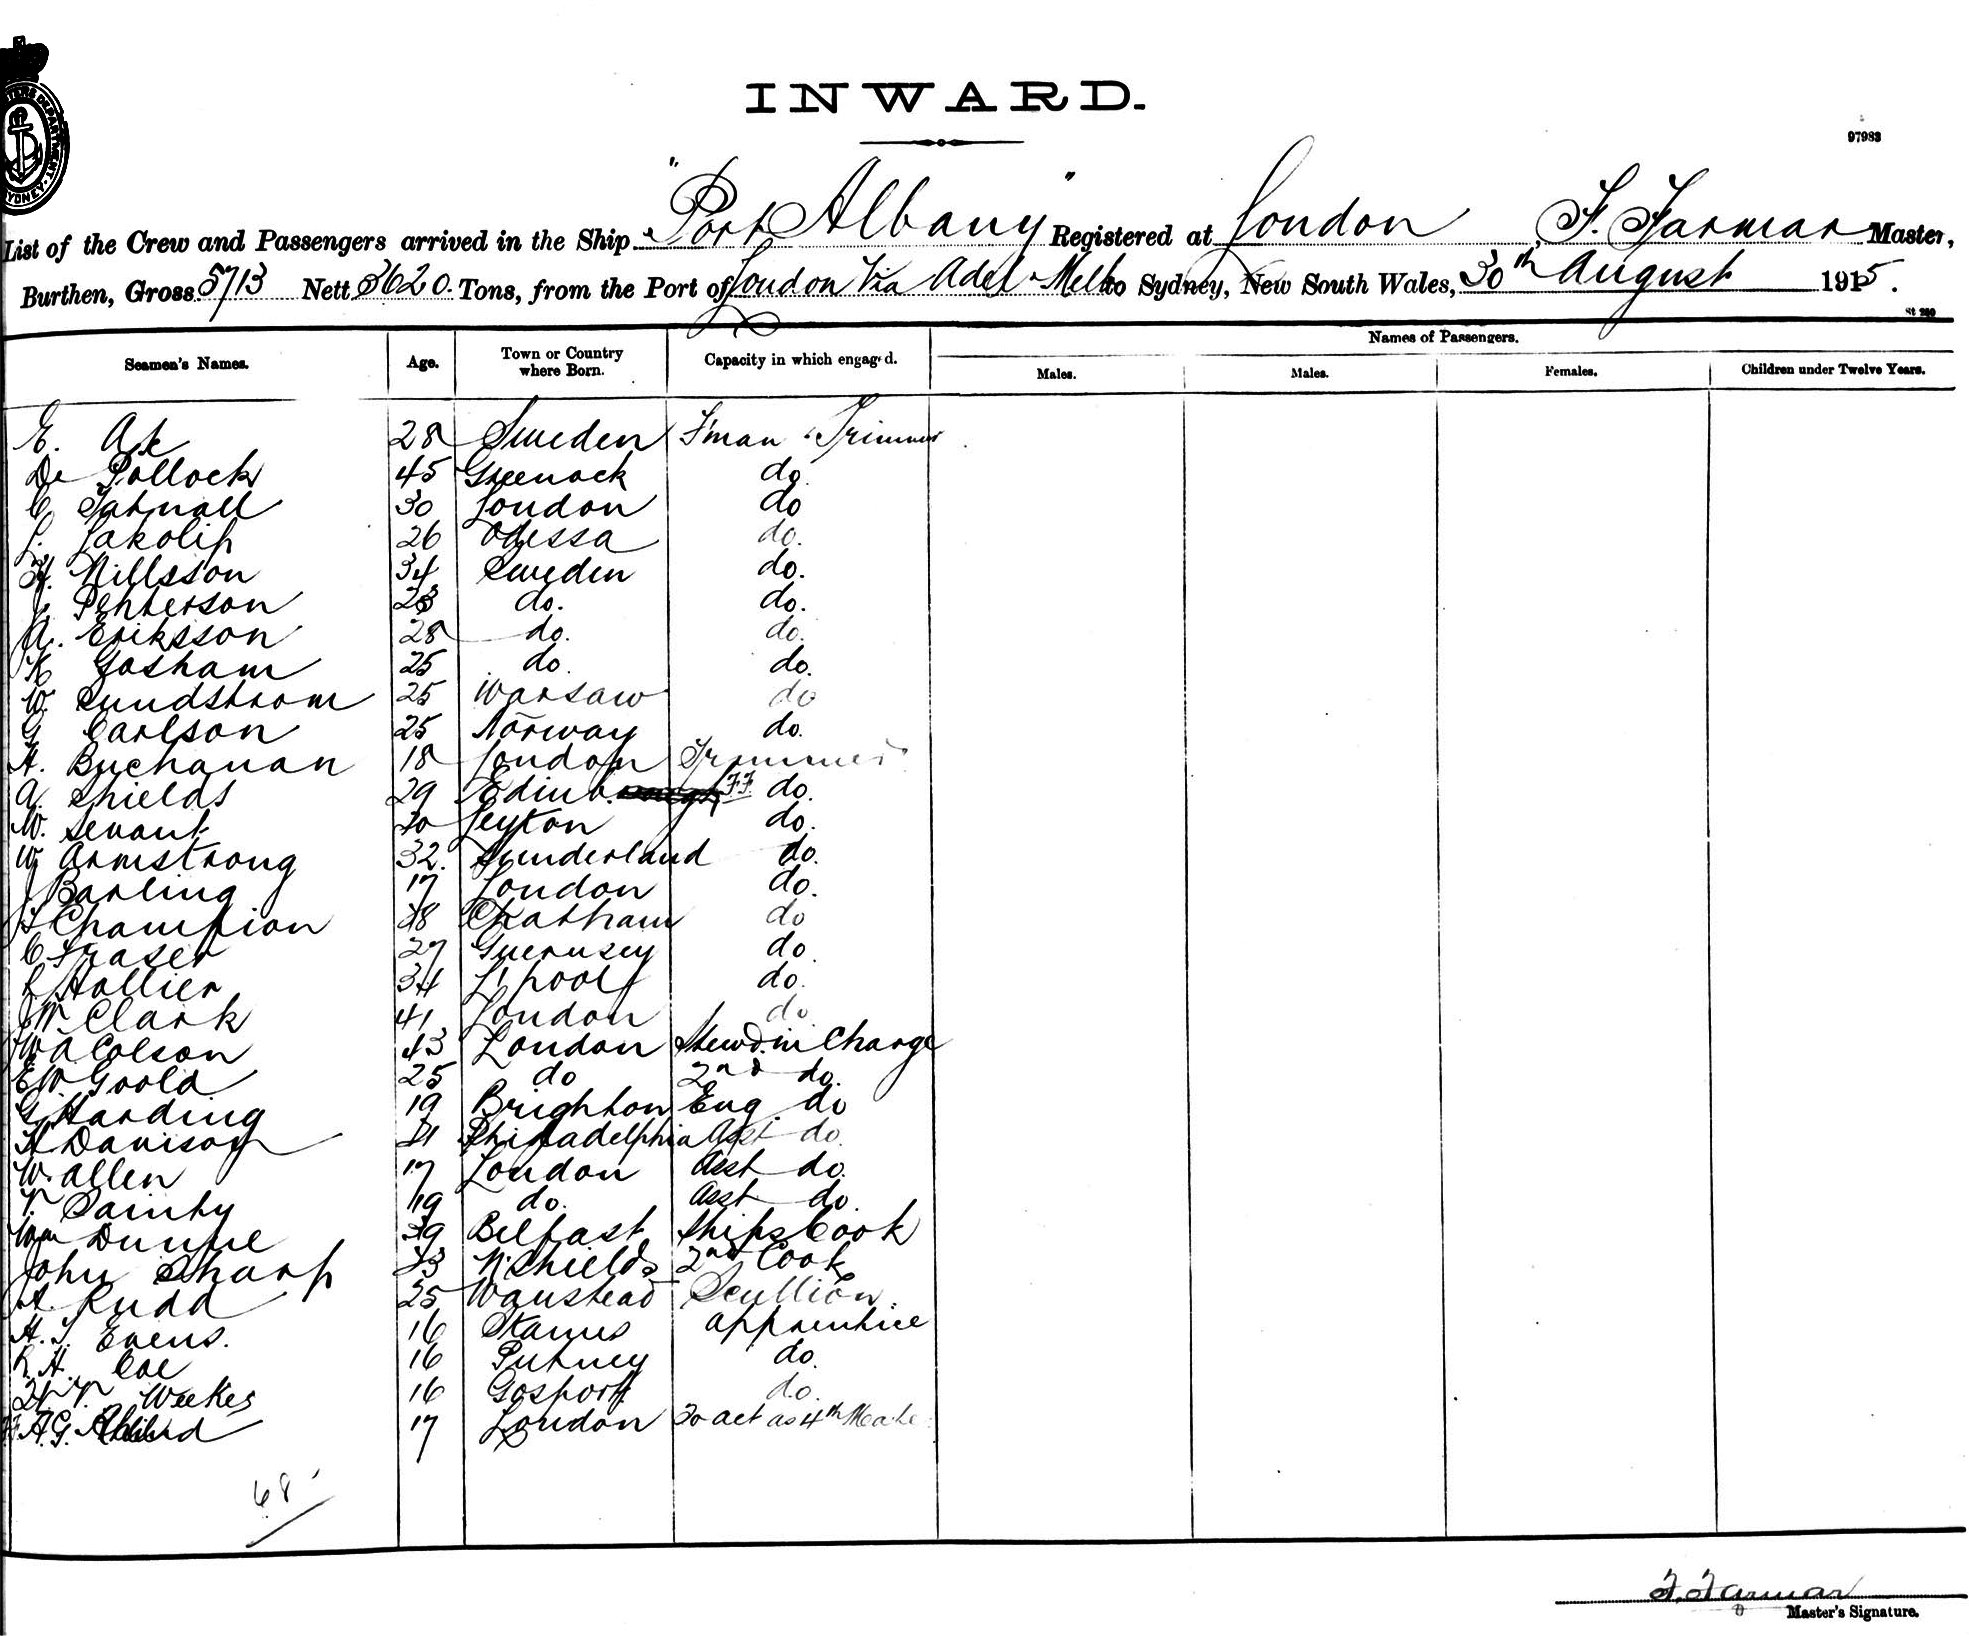 INWARD.
97983
List of the Crew and Passengers arrived in the Ship "Port Albany" Registered at London, F. Farmar Master,
Burthen, Gross 5713 Nett 3620. Tons, from the Port of London Via Adel & Melb to Sydney, New South Wales, 30th August 1915.
Names of Passengers.
Seamen's Names. Age. Town or Country where Born. Capacity in which engaged. Males. Males. Females. Children under Twelve Years.
E. Ask 28 Sweden F'man & Trimmer
De Pollock 45 Greenock do.
C. Tatnall 30 London do
J. Jakolip 26 Odessa do.
H. Nillsson 34 Sweden do.
J. Pehterson 23 do. do.
A. Eriksson 28 do. do.
K Gosham 25 do. do.
W. Sundstrom 25 Warsaw do
G Carlson 25 Norway do.
H. Buchanan 18 London Trimmer
A. Shields 29 Edinb. F.F. do.
W. Sevant 20 Leyton do.
W Armstrong 32. Sunderland do.
J Barling 17 London do.
F Champion 38 Chatham do
C Fraser 27 Guernsey do
L Hollier 34 L'pool do.
J W Clark 41 London do.
W A Colson 43 London Stewd. in Charge
E W. Goold 25 do 2nd do.
G Harding 19 Brighton Eng. do
H Davison 21 Philadelphia Asst do.
W. Allen 17 London Asst do.
V. Sainty 19 do. Asst do.
Wm Dunne 39 Belfast Ships Cook
John Sharp 23 N. Shields 2nd Cook
A. Rudd 25 Wanstead Scullion.
H. T. Evens. 16 apprentice
R. H. Coe 16 Putney do.
V. Weekes 16 Gosport do.
F.F. A. G. 17 London To act as 4th Mate
68
F. Farmar
Master's Signature.